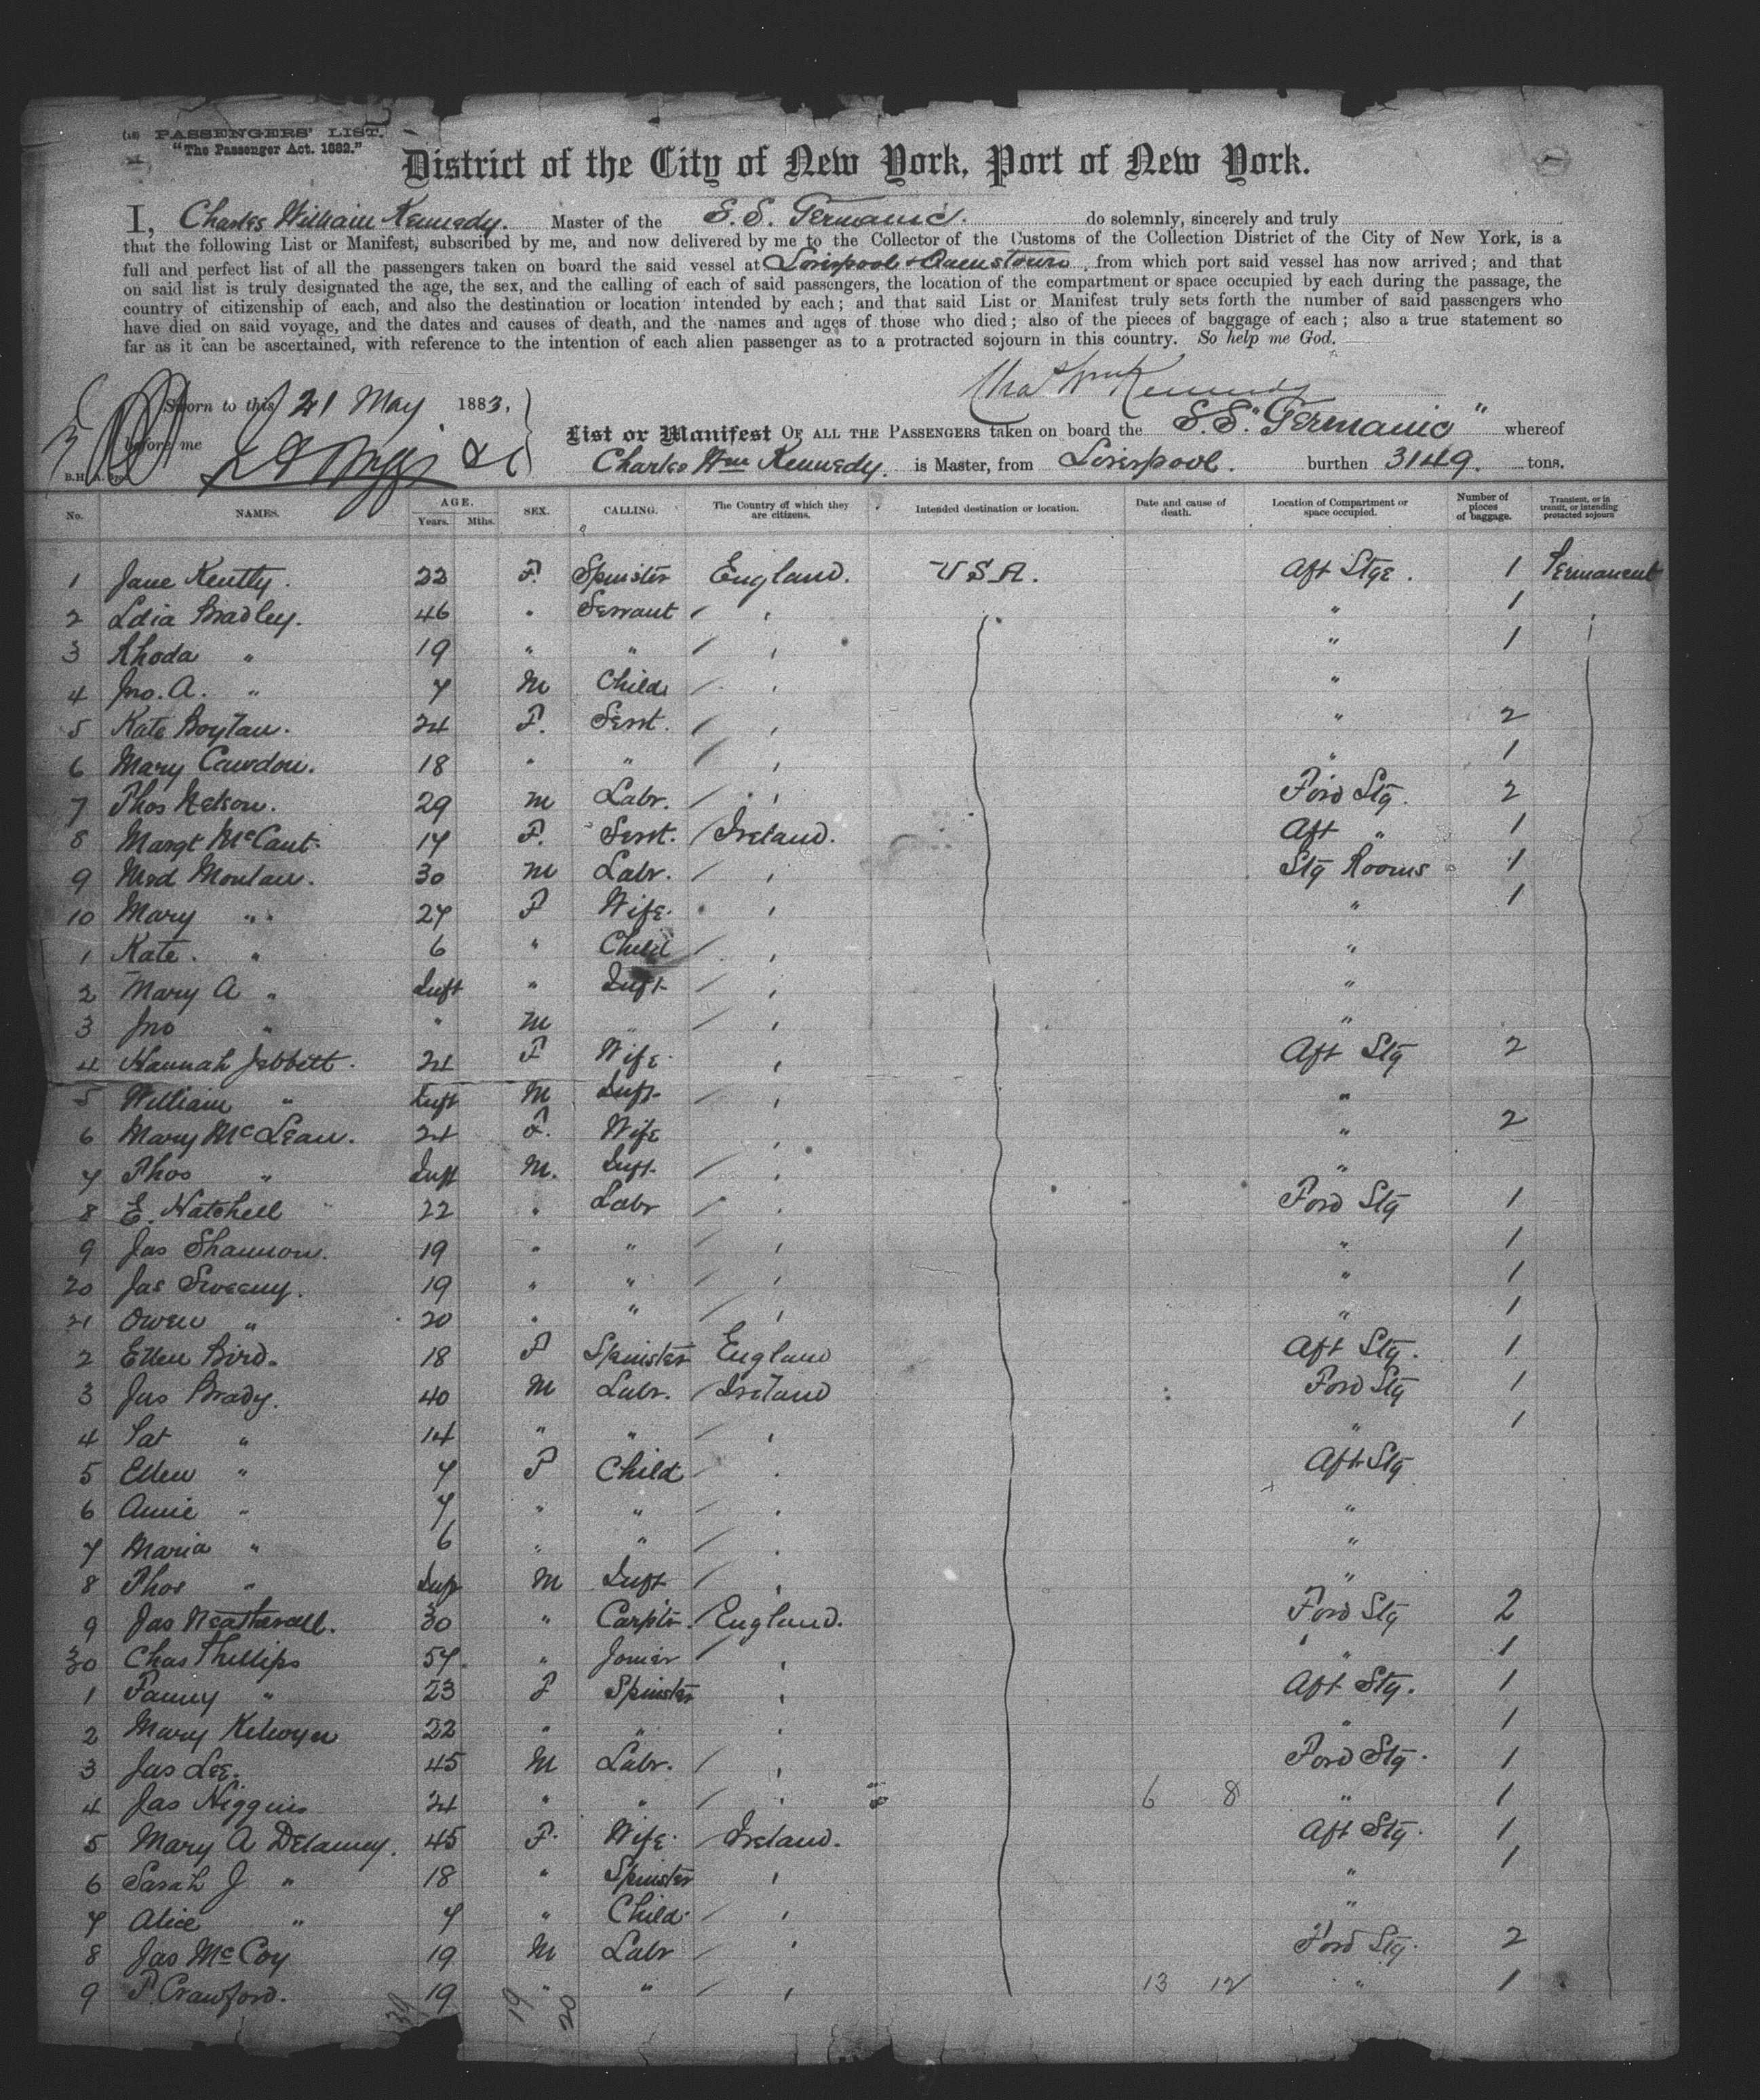 (18) PASSENGERS' LIST.
"The Passenger Act. 1882."
District of the City of New York, Port of New York.
I, Charles William Kennedy. Master of the S.S. Germanic. do solemnly, sincerely and truly
that the following List or Manifest, subscribed by me, and now delivered by me to the Collector of the Customs of the Collection District of the City of New York, is a
full and perfect list of all the passengers taken on board the said vessel at Liverpool & Queenstown, from which port said vessel has now arrived; and that
on said list is truly designated the age, the sex, and the calling of each of said passengers, the location of the compartment or space occupied by each during the passage, the
country of citizenship of each, and also the destination or location intended by each; and that said List or Manifest truly sets forth the number of said passengers who
have died on said voyage, and the dates and causes of death, and the names and ages of those who died; also of the pieces of baggage of each; also a true statement so
far as it can be ascertained, with reference to the intention of each alien passenger as to a protracted sojourn in this country. So help me God.
Chas Wm Kennedy
Sworn to this 21 May 1883,
before me
List or Manifest OF ALL THE PASSENGERS taken on board the S.S. "Germanic" whereof
Charles Wm Kennedy. is Master, from Liverpool. burthen 3149. tons.
No. NAMES. AGE. Years. Mths. SEX. CALLING. The Country of which they are citizens. Intended destination or location. Date and cause of death. Location of Compartment or space occupied. Number of pieces of baggage. Transient, or in transit, or intending protracted sojourn
1 Jane 22 F. Spinster England. U S A. Aft Stge. 1 Permanent
2 Bradley. 46 " Servant / , " 1
3 Rhoda " 19 " " / , " 1
4 Jno. A. " 7 M Child / , "
5 Kate Boylan. 24 F. Servt. / , " 2
6 Mary 18 " " / , " 1
7 Thos Nelson. 29 M Labr. / , Ford Stg. 2
8 Margt McCant. 17 F. Servt. / Ireland. Aft " 1
9 30 M Labr. / , Stg Rooms 1
10 Mary " 27 F Wife. , " 1
1 Kate. " 6 " Child / , "
2 Mary A " Inft " Inft / , "
3 Jno " " M " / , "
4 Hannah Jebbitt. 24 F Wife. , Aft Stg 2
5 William " Inft M Inft. / , "
6 Mary McLean. 24 F. Wife , " 2
7 Thos " Inft M. Inft. / , "
8 E. Hatchell 22 " Labr / , Ford Stg 1
9 Jas Shannon. 19 " " / , " 1
20 Jas Sweeny. 19 " " / , " 1
21 Owen " 20 " " / , " 1
2 Ellen Bird. 18 F Spinster England Aft Stg. 1
3 Jas Brady. 40 M Labr. / Ireland Ford Stg 1
4 Pat " 14 " " / , " 1
5 Ellen " 7 F Child / , Aft Stg
6 Annie " 7 " " / , "
7 Maria " 6 " " / , "
8 Thos " Inft M Inft / , "
9 Jas 30 " Carptr. / England. Ford Stg 2
30 Chas Phillips 57 " Joiner / , " 1
1 Fanny " 23 F Spinster , Aft Stg. 1
2 Mary 22 " " , " 1
3 Jas Lee. 45 M Labr. / , Ford Stg. 1
4 Jas Higgins 24 " " / , 6 8 " 1
5 Mary A Delaney. 45 F. Wife. / Ireland. Aft Stg. 1
6 Sarah J " 18 " Spinster , " 1
7 Alice " 7 " Child. / , "
8 Jas McCoy 19 M Labr / , Ford Stg. 2
9 P. Crawford. 19 " " / , 13 12 " 1
39 19 20